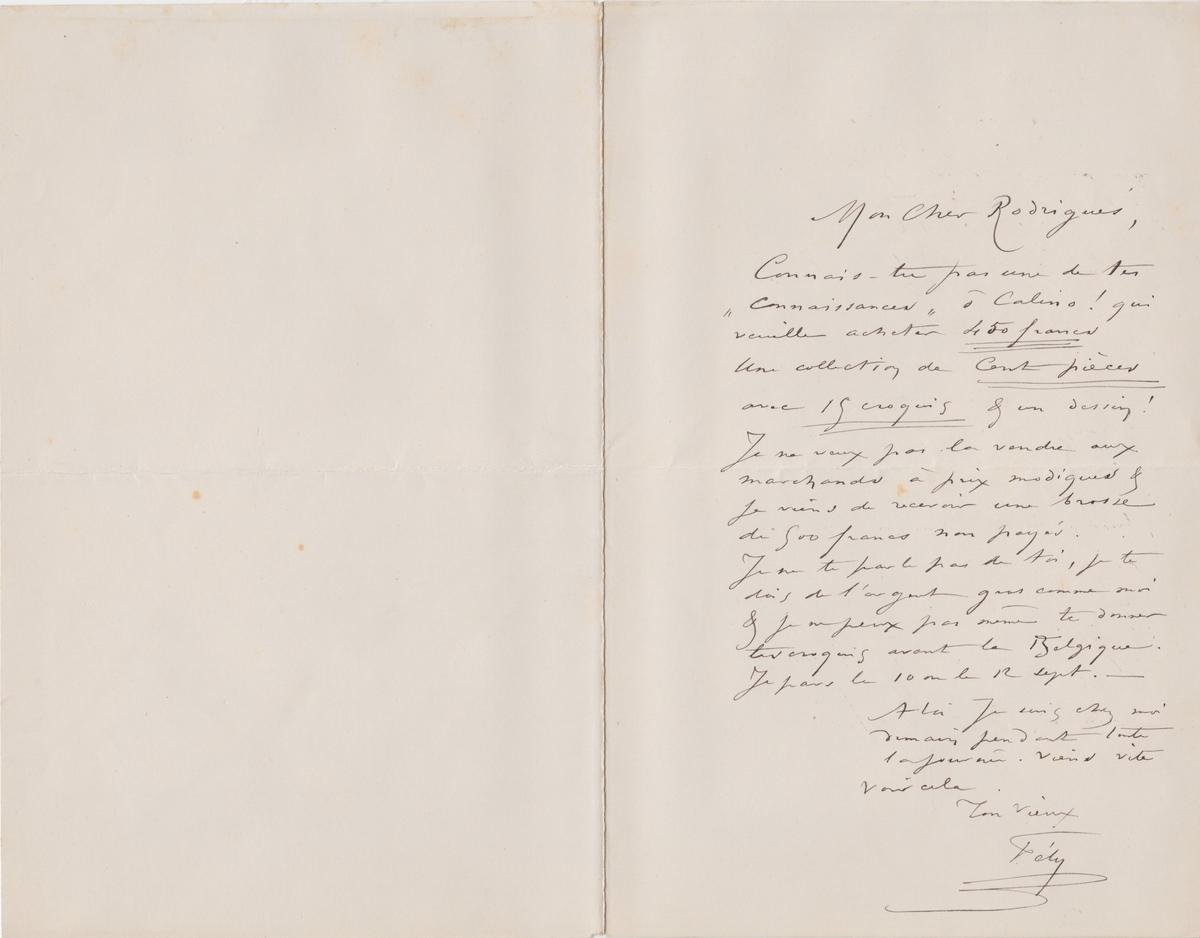 Mon Cher Rodrigués,
Connais-tu pas une de tes
„ connaissances „ ô Calino ! qui
veuille acheter 450 francs
Une collection de Cent pièces
avec 15 croquis & un dessin !
Je ne veux pas la vendre aux
marchands à prix modiques &
je viens de recevoir une brosse
de 500 francs non payés.
Je ne te parle pas de toi, je te
dois de l'argent gros comme moi
& je ne peux pas même te donner
tes croquis avant la Belgique.
Je pars le 10 ou le 12 sept. —
A toi Je suis chez moi
demain pendant toute
la journée. Viens vite
voir cela.
Ton vieux
Fély